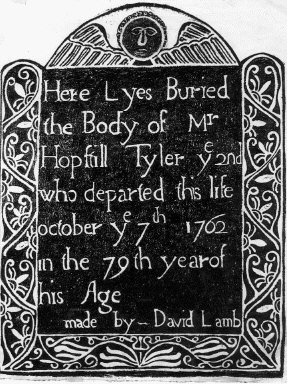 Here Lyes Buried
the Body of Mr
Hopfill Tyler yᵉ 2nd
who departed this life
october yᵉ 7th 1762
in the 79th year of
his Age
made by - David Lamb